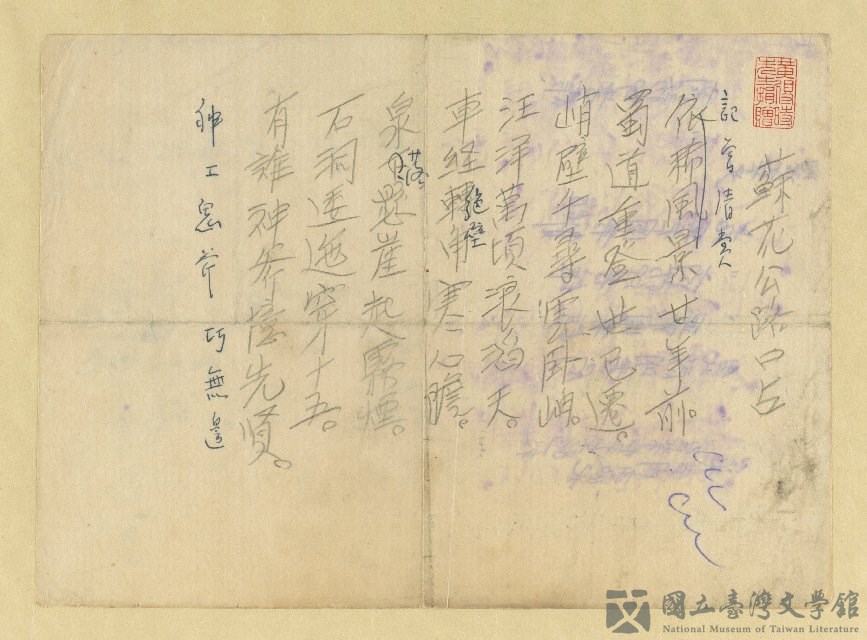 蘇花公路口占
記
依稀風景廿年前。
蜀道重登世已遷。
峭壁千尋雲臥岫。
汪洋萬頃浪滔天。
車經轉角寒心膽。
絕壁
泉落懸崖起霧煙。
石洞逶迤穿十五。
有誰神斧憶先賢。
神工鬼斧巧無邊
國立臺灣文學館
National Museum of Taiwan Literature